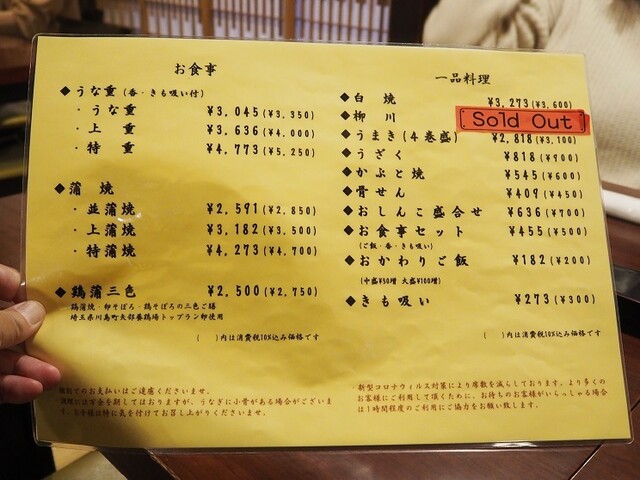 お食事
◆うな重（香・きも吸い付）
・うな重 ¥3,045(¥3,350)
・上 重 ¥3,636(¥4,000)
・特 重 ¥4,773(¥5,250)
◆蒲 焼
・並蒲焼 ¥2,591(¥2,850)
・上蒲焼 ¥3,182(¥3,500)
・特蒲焼 ¥4,273(¥4,700)
◆鶏蒲三色 ¥2,500(¥2,750)
鶏蒲焼・卵そぼろ・鶏そぼろの三色ご膳
埼玉県川島町矢部養鶏場トップラン卵使用
（ ）内は消費税10%込み価格です
個別でのお支払いはご遠慮くださいませ。
には万全を期してはおりますが、うなぎに小骨がある場合がございま
す。お子様は特に気を付けてお召し上がりくださいませ。
一品料理
◆白 焼 ¥3,273(¥3,600)
◆柳 川
Sold Out
◆うまき(4巻盛) ¥2,818(¥3,100)
◆うざく ¥818(¥900)
◆かぶと焼 ¥545(¥600)
◆骨せん ¥409(¥450)
◆おしんこ盛合せ ¥636(¥700)
◆お食事セット ¥455(¥500)
(ご飯・香・きも吸い)
◆おかわりご飯 ¥182(¥200)
(中盛¥50増 大盛¥100増)
◆きも吸い ¥273(¥300)
（ ）内は消費税10%込み価格です
・新型コロナウィルス対策により席数を減らしております。より多くの
お客様にご利用して頂くために、お待ちのお客様がいらっしゃる場合
は1時間程度のご利用にご協力をお願い致します。